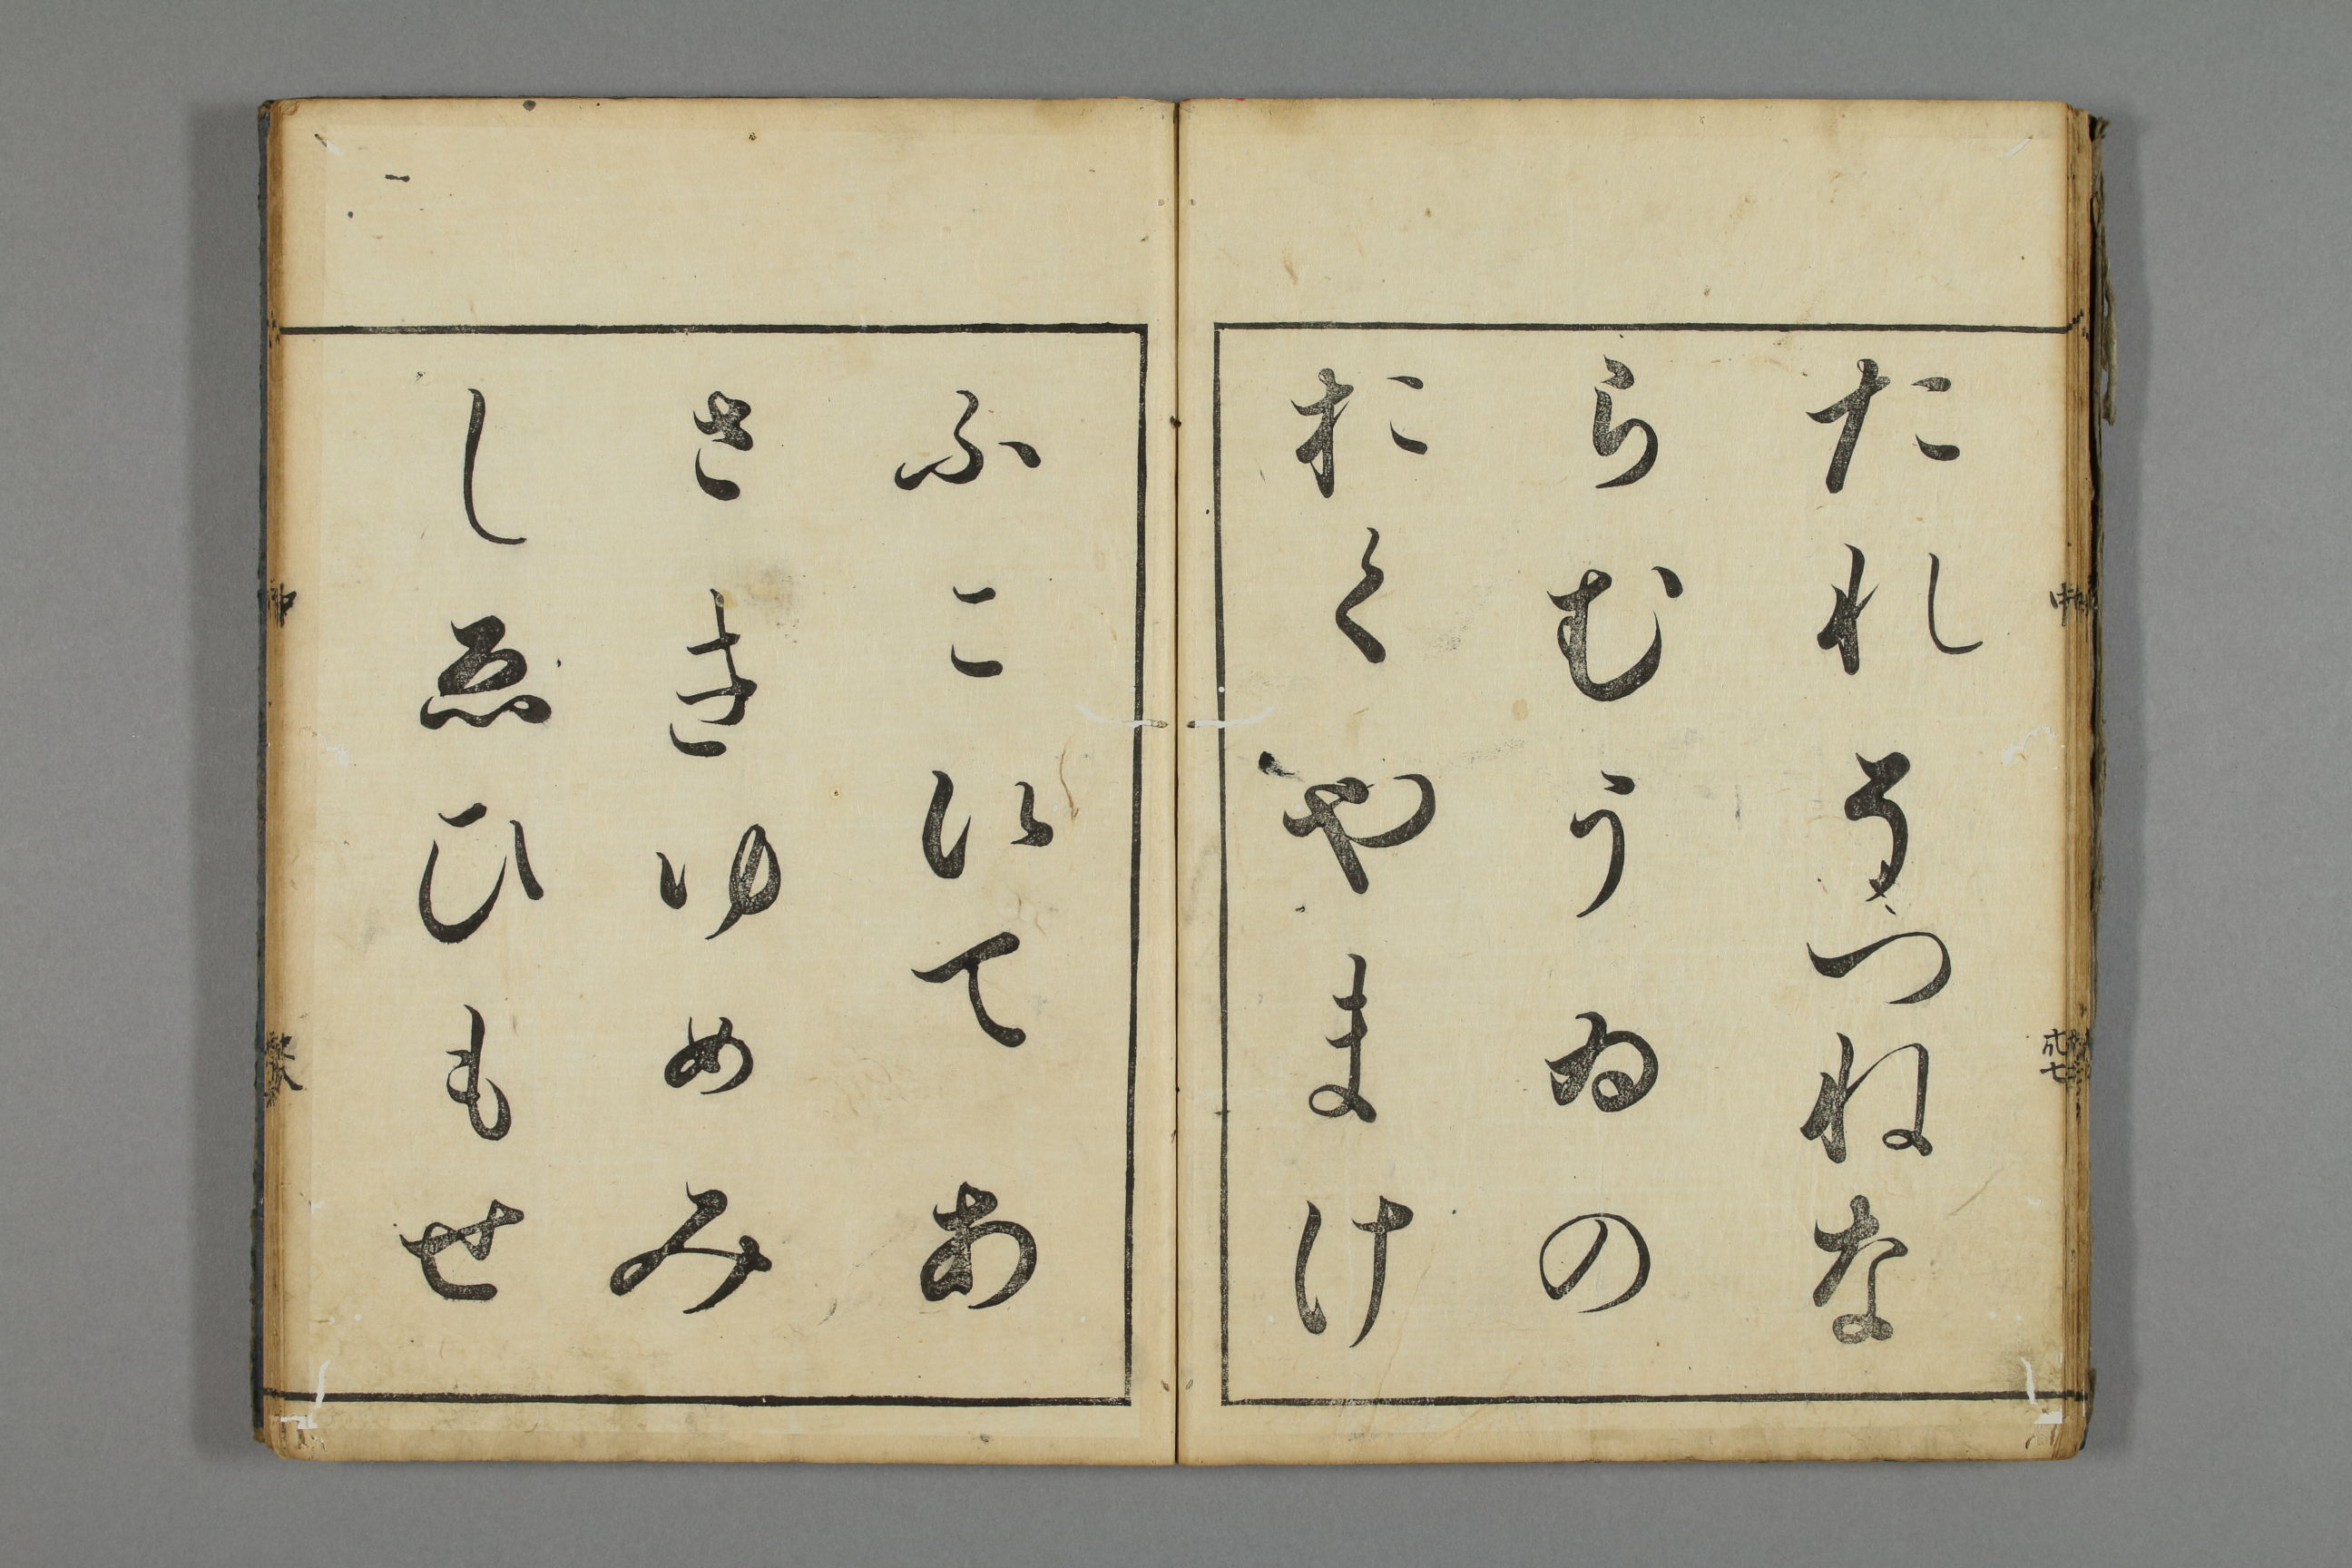 たれそつねな
らむうゐの
おくやまけ
ふこえてあ
さきゆめみ
しゑひもせ